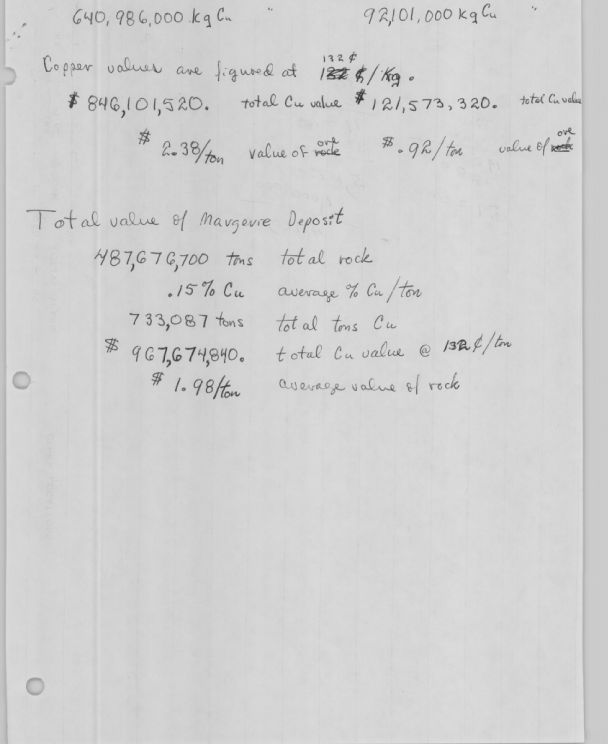 640,986,000 kg Cu " 92,101,000 kg Cu "
132 ¢
Copper values are figured at 122 ¢/Kg.
$ 846,101,520. total Cu value $ 121,573,320. total Cu value
$ 2.38/ton value of rock ore $ .92/ton value of rock ore
Total value of Margerie Deposit
487,676,700 tons total rock
.15% Cu average % Cu/ton
733,087 tons total tons Cu
$ 967,674,840. total Cu value @ 132 ¢/ton
$ 1.98/ton average value of rock